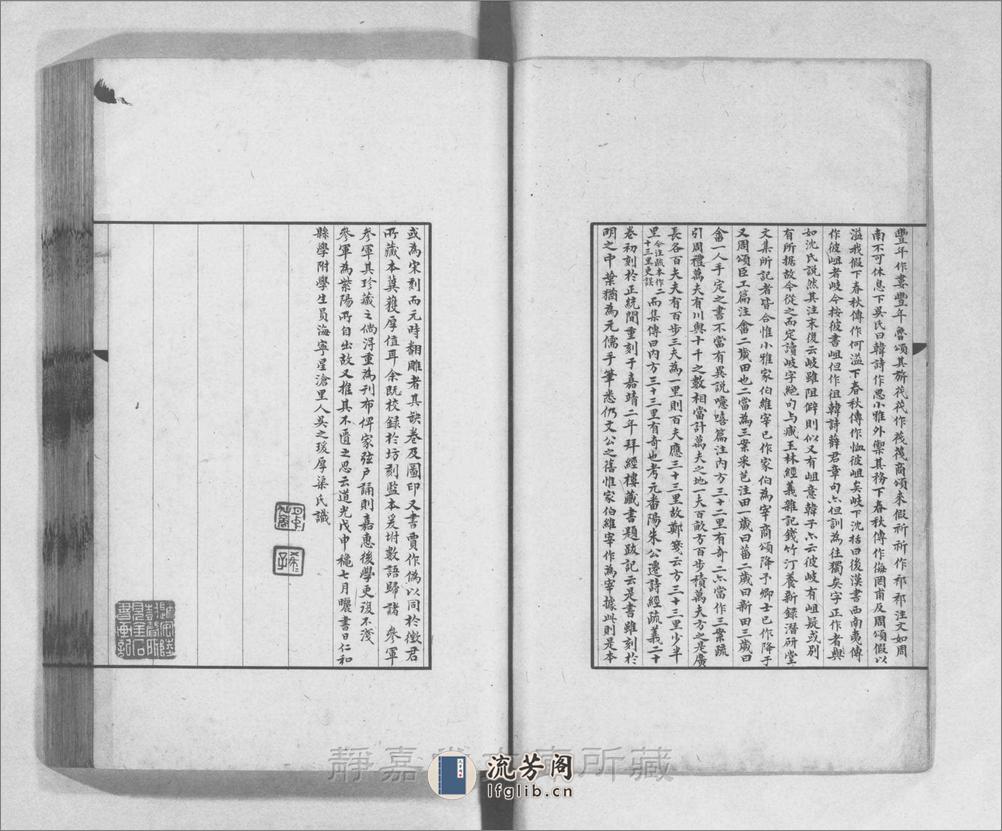 豐年作婁豐年魯頌其旂茷茷作筏筏商頌来假祈祈作祁祁注文如周
南不可休息下吴氏曰韓詩作思小雅外禦其務下春秋傳作侮罔甫及周頌假以
溢我假下春秋傳作何溢下春秋傳作恤彼岨矣岐下沈括曰後漢書西南夷傳
作彼岨者岐今按彼書岨但作徂韓詩薛君章句亦但訓為往獨矣字正作者與
如沈氏説然其注末復云岐雖阻僻則似又有岨意韓子亦云彼岐有岨疑或别
有所据故今從之而定讀岐字絶句与臧玉林經義雜記錢竹汀養新録潛研堂
文集所記者皆合惟小雅家伯維宰已作家伯為宰商頌降予卿士已作降于
又周頌臣工篇注畬二歲田也二當為三案采芑注田一歲曰菑二歲曰新田三歲曰
畬一人手定之書不當有異說噫嘻篇注内方三十二里有奇二亦當作三案疏
引周禮萬夫有川與十千之數相當計萬夫之地一夫百畝方百步積萬夫方之是廣
長各百夫夫有百步三夫為一里則百夫應三十三里故鄭箋云方三十三里少半
里今注疏本作二十三里更誤而集傳曰内方三十三里有奇也考元番陽朱公遷詩經疏義二十
卷初刻於正統間重刻于嘉靖二年拜經樓藏書題跋記云是書雖刻於
明之中葉猶為元儒手筆悉仍文公之舊惟家伯維宰作為宰據此則是本
或為宋刻而元時翻雕者其詇卷及圖印又書賈作偽以同於徵君
所藏本冀獲厚值耳余既校録於坊刻監本爰坿數語歸諸 参軍
参軍其珍藏之倘得重為刊布俾家弦户誦則嘉惠後學更復不淺
参軍為紫陽所自出故又推其不匱之思云道光戊申穐七月曬書日仁和
縣學附學生員海寧星滄里人吴之瑗厚渠氏識
靜嘉堂文庫所藏
流芳阁
lfglib.cn